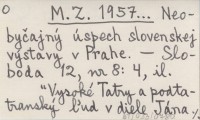 O M.Z. 1957... Neo-
byčajný úspech slovenskej
výstavy v Prahe. – Slo-
boda 12, nr 8: 4, il.
"Vysoké Tatry a podta-
transký ľud v diele Jána ·/.